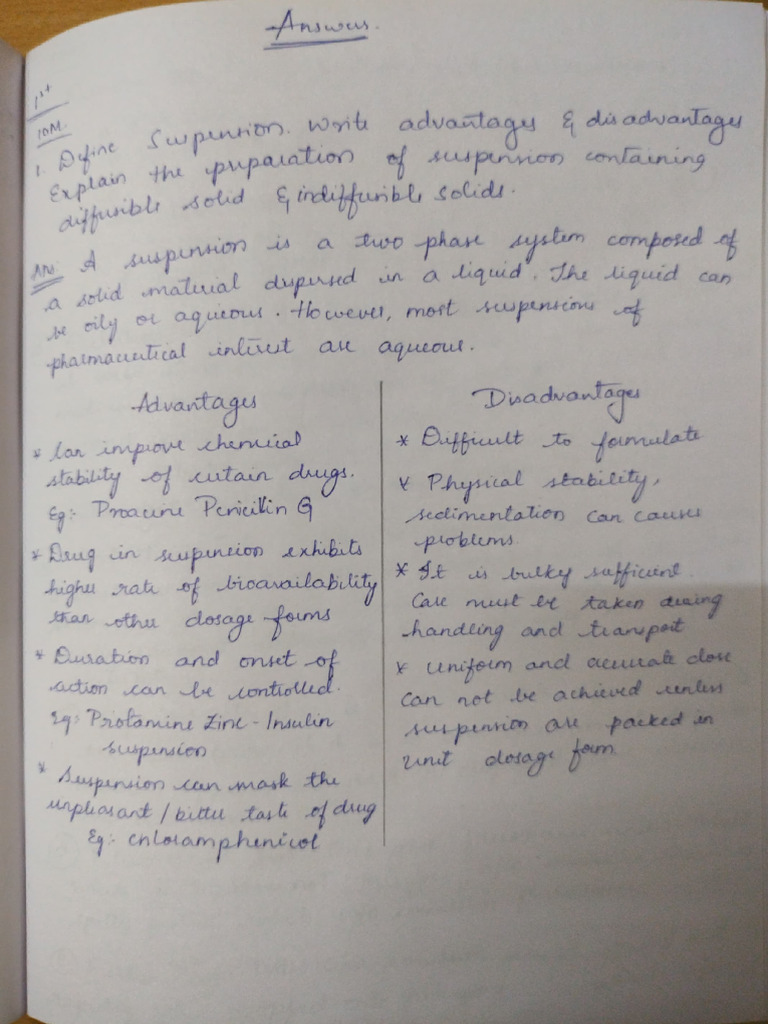 Answers.
1st
10M.
1. Define Suspension. Write advantages & disadvantages
Explain the preparation of suspension containing
diffusible solid & indiffusible solids.
Ans. A suspension is a two phase system composed of
a solid material dispersed in a liquid. The liquid can
be oily or aqueous. However, most suspensions of
pharmaceutical interest are aqueous.
Advantages
* Can improve chemical
stability of certain drugs.
Eg:- Proacine Penicillin G
* Drug in suspencion exhibits
higher rate of bioavailability
than other dosage forms
* Duration and onset of
action can be controlled.
Eg:- Protamine Zinc-Insulin
suspension
* Suspension can mask the
unpleasant / bitter taste of drug
Eg:- chloramphenicol
Disadvantages
* Difficult to formulate
* Physical stability,
sedimentation can causes
problems
* It is bulky sufficient
Care must be taken during
handling and transport
* Uniform and accurate dose
can not be achieved unless
suspension are packed in
unit dosage form